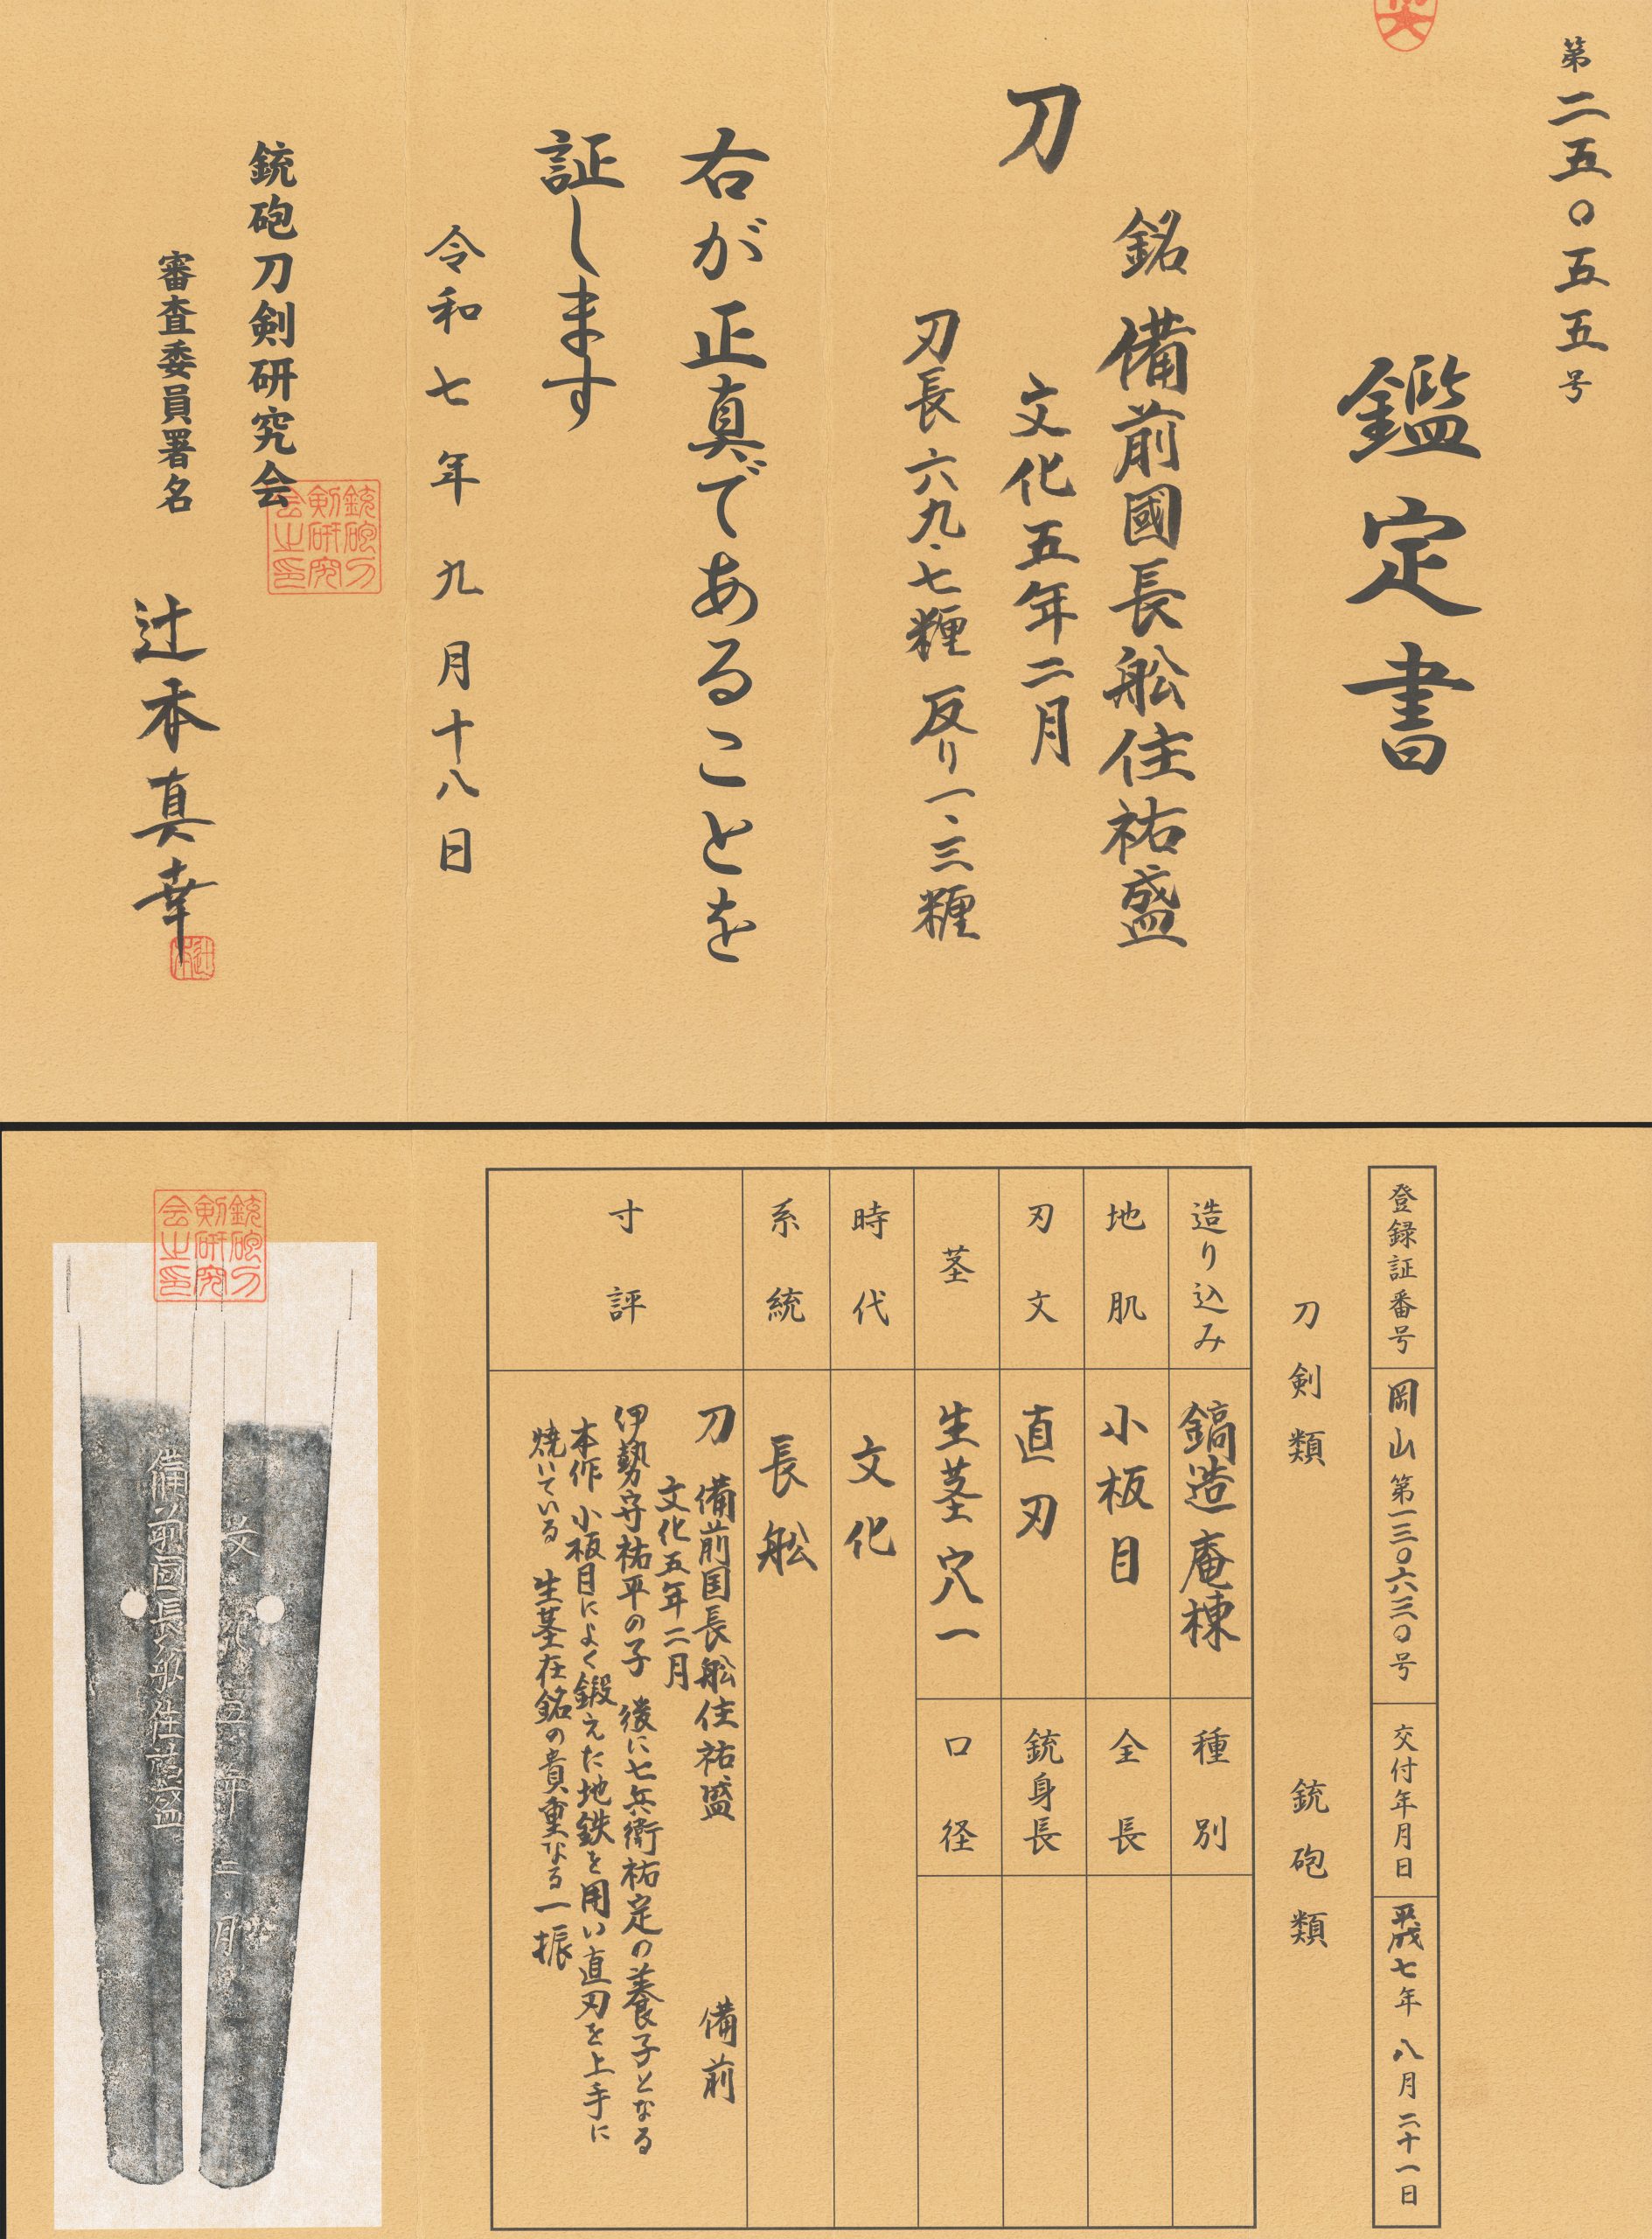 第二五〇五五号
鑑定書
刀
銘 備前國長舩住祐盛
文化五年二月
刃長 六九、七糎 反り 一、三糎
右が正真であることを
証します
令和七年九月十八日
銃砲刀剣研究会
銃砲刀剣研究会之印
審査委員署名 辻本真幸
辻本
登録証番号 岡山 第一三〇六三〇号 交付年月日 平成七年八月二十一日
刀剣類 銃砲類
造り込み 鎬造 庵棟 種別
地肌 小板目 全長
刃文 直刃 銃身長
茎 生茎 穴一 口径
時代 文化
系統 長舩
寸評
刀 備前国長舩住祐盛 備前
文化五年二月
伊勢守祐平の子 後に七兵衛祐定の養子となる
本作 小板目によく鍛えた地鉄を用い直刃を上手に
焼いている 生茎在銘の貴重なる一振
銃砲刀剣研究会之印
文化五年二月
備前國長舩住祐盛